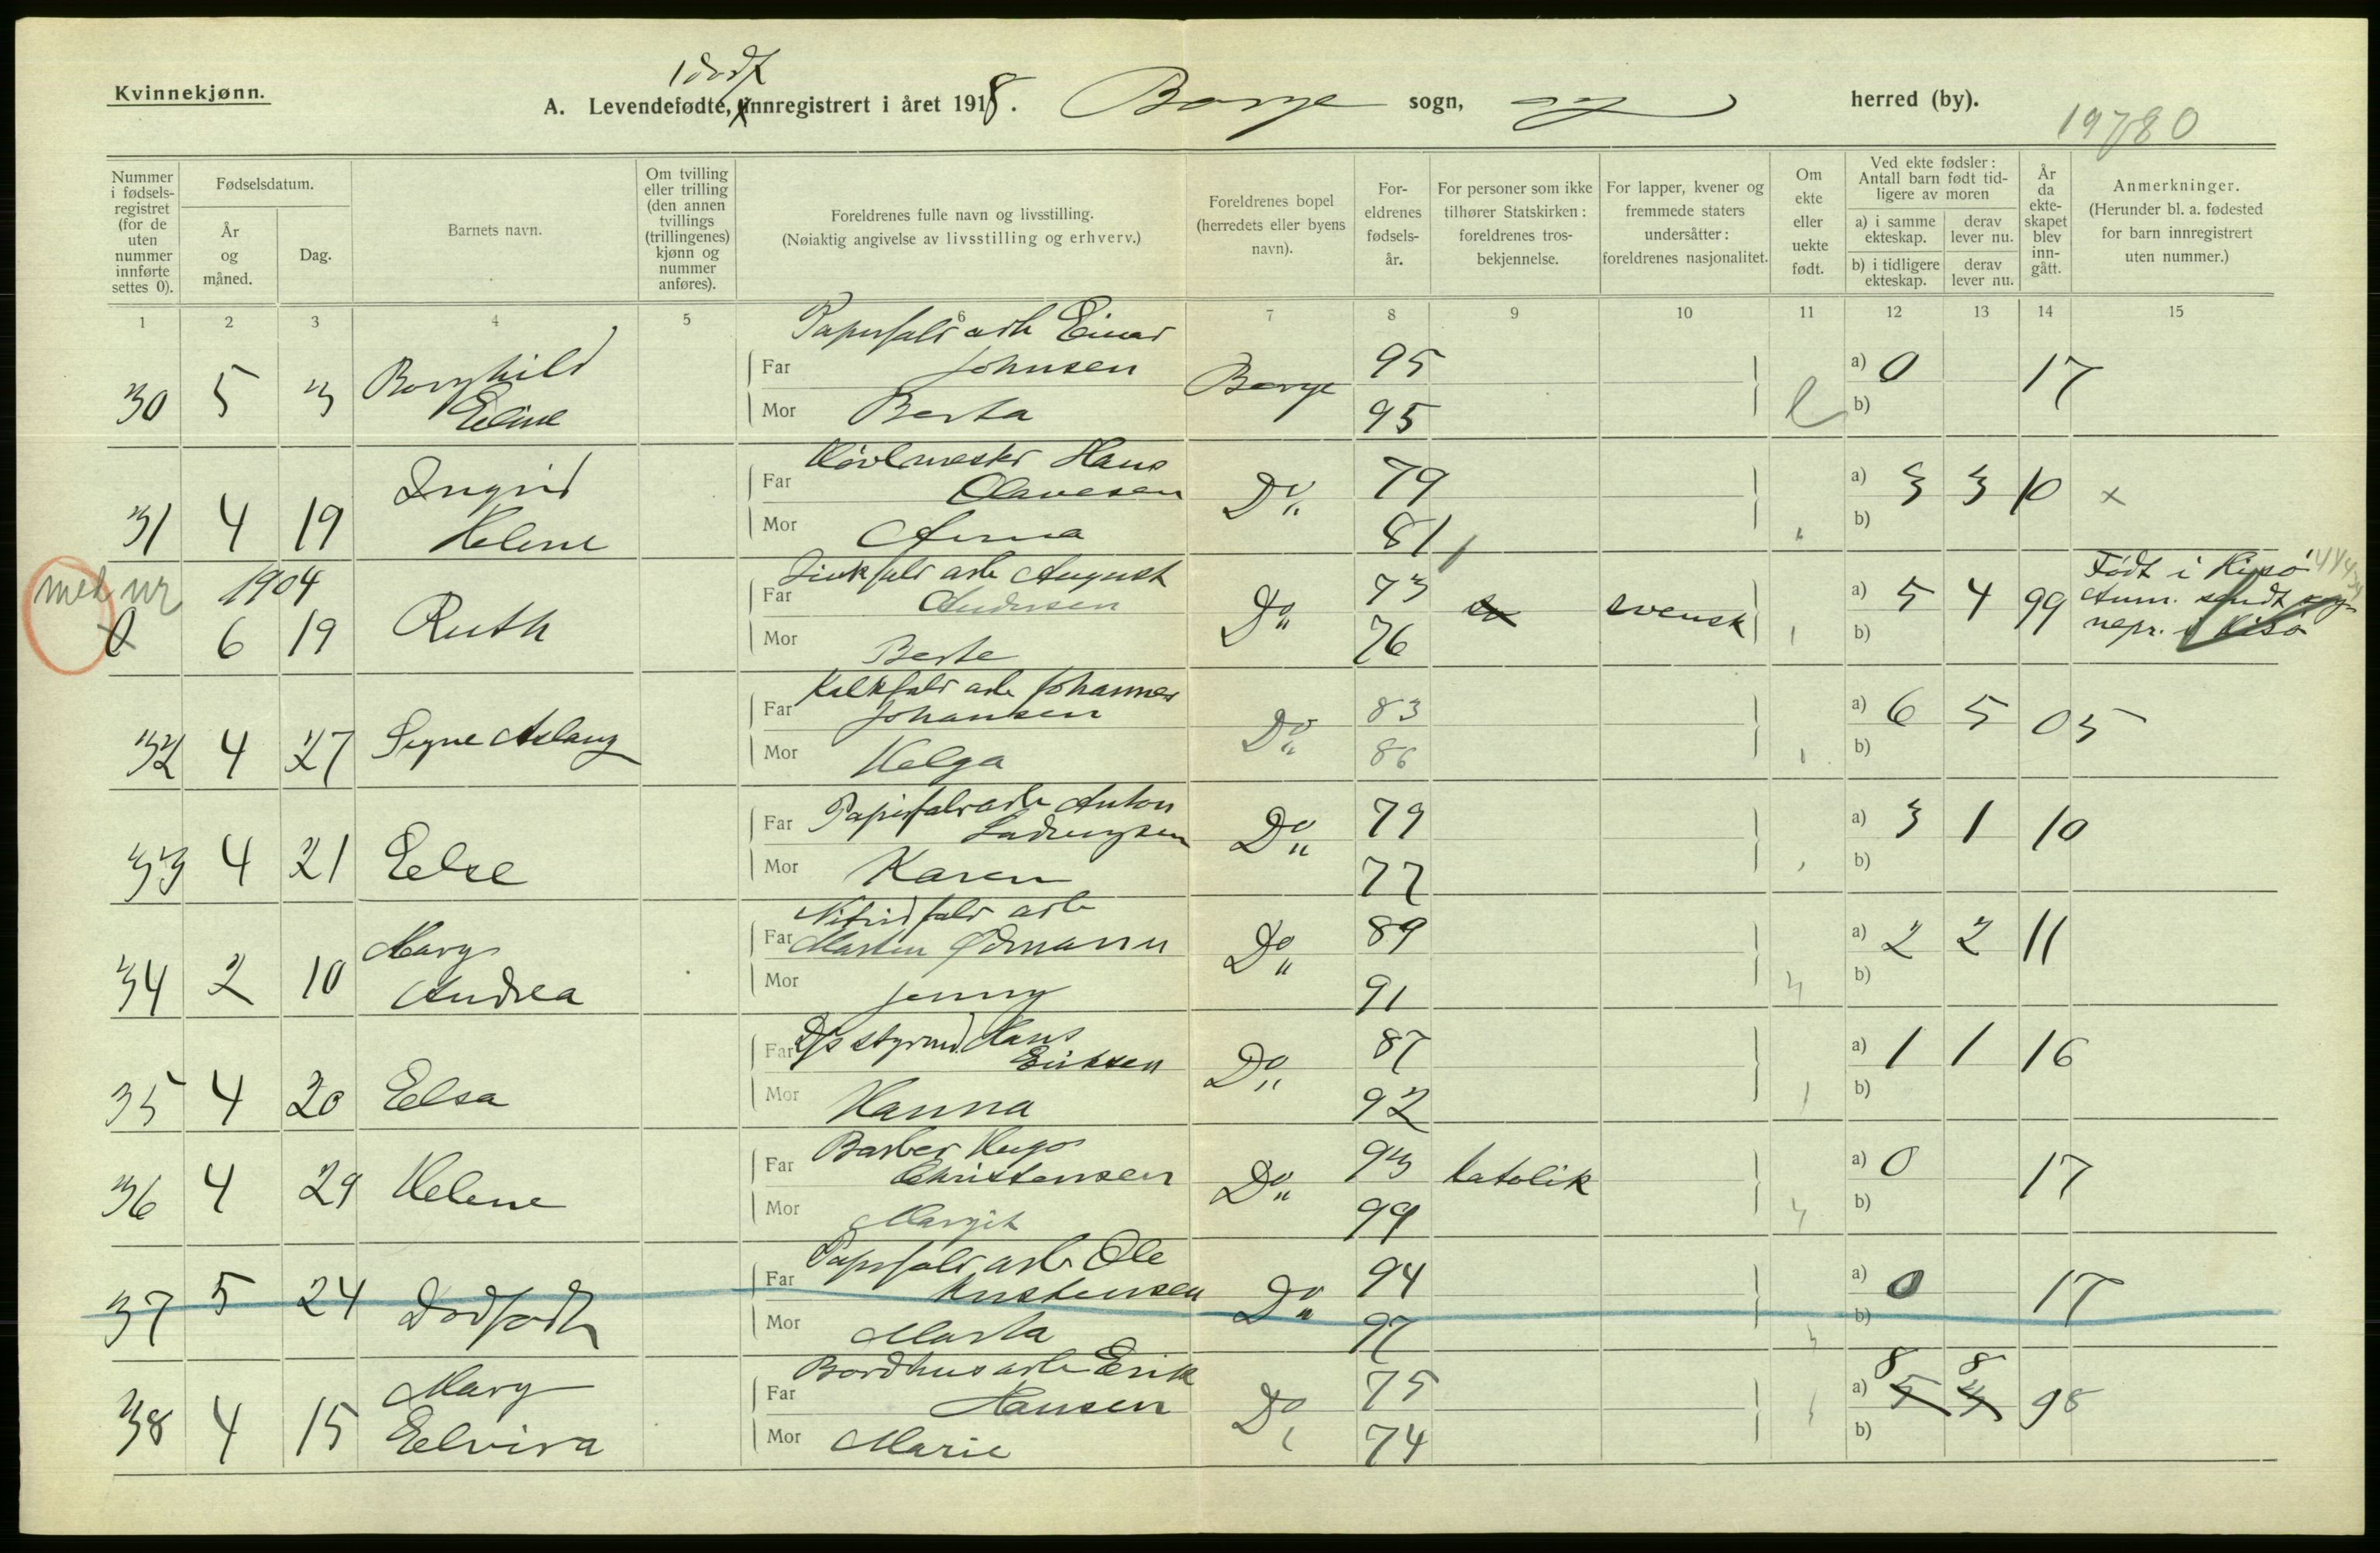 Kvinnekjønn.
1 dødf
A. Levendefødte, innregistrert i året 1918. Borge sogn, herred (by).
19780
Nummer i fødselsregistret (for de uten nummer innførte settes 0).
Fødselsdatum.
År og måned.
Dag.
Barnets navn.
Om tvilling eller trilling (den annen tvillings (trillingenes) kjønn og nummer anføres).
Foreldrenes fulle navn og livsstilling.
(Nøiaktig angivelse av livsstilling og erhverv.)
Foreldrenes bopel (herredets eller byens navn).
Foreldrenes fødselsår.
For personer som ikke tilhører Statskirken: foreldrenes trosbekjennelse.
For lapper, kvener og fremmede staters undersåtter: foreldrenes nasjonalitet.
Om ekte eller uekte født.
Ved ekte fødsler: Antall barn født tidligere av moren
a) i samme ekteskap.
derav lever nu.
b) i tidligere ekteskap.
derav lever nu.
År da ekteskapet blev inngått.
Anmerkninger.
(Herunder bl. a. fødested for barn innregistrert uten nummer.)
1 2 3 4 5 6 7 8 9 10 11 12 13 14 15
Papirfabr arb Einar
30 5 3 Borghild Far Johnsen Borge 95 a) 0 17
Eline Mor Berta 95 e b)
Høvlmester Hans
31 4 19 Ingrid Far Olavesen Do 79 a) 3 3 10 x
Helene Mor Anna 81 b)
med nr 1904 Zinkfabr arb August Født i Hisø
0 6 19 Ruth Far Andersen Do 73 svensk a) 5 4 99 Anm. sendt
Mor Berte 76 b) nepr. i Hisø
Kalkfabr arb Johannes
32 4 27 Signe Aslaug Far Johansen Do 83 a) 6 5 05
Mor Helga 86 b)
33 4 21 Else Far Papirfabr arb Anton Ludvigsen Do 79 a) 3 1 10
Mor Karen 77 b)
Nitrid fabr arb
34 2 10 Mary Far Martin Ødmann Do 89 a) 2 2 11
Andrea Mor Jenny 91 b)
35 4 20 Elsa Far D/S styrmd. Hans Eriksen Do 87 a) 1 1 16
Mor Hanna 92 b)
36 4 29 Helene Far Barber Hugo Christensen Do 93 katolik a) 0 17
Mor Margit 99 b)
Papirfabr arb Ole
37 5 24 Dødfødt Far Kristensen Do 94 a) 0 17
Mor Marta 97 b)
Bordhus arb Erik 8 8
38 4 15 Mary Far Hansen Do 75 a) 5 4 98
Elvira Mor Marie 74 b)